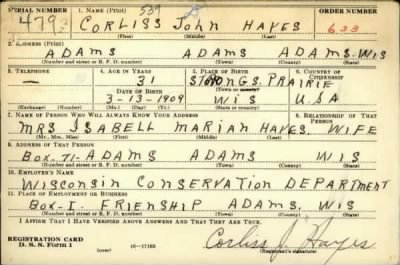 SERIAL NUMBER 1. NAME (Print) 539 ORDER NUMBER
479 CORLISS John HAYES 633
(First) (Middle) (Last)
2. ADDRESS (Print)
ADAMS ADAMS ADAMS WIS
(Number and street or R. F. D. number) (Town) (County) (State)
3. TELEPHONE 4. AGE IN YEARS 5. PLACE OF BIRTH 6. COUNTRY OF CITIZENSHIP
— 31 STRONGS PRAIRIE
DATE OF BIRTH (Town or county)
3-13-1909 WIS USA
(Exchange) (Number) (Mo.) (Day) (Yr.) (State or country)
7. NAME OF PERSON WHO WILL ALWAYS KNOW YOUR ADDRESS RELATIONSHIP OF THAT PERSON
MRS ISABELL MARIAN HAYES WIFE
(Mr., Mrs., Miss) (First) (Middle) (Last)
8. ADDRESS OF THAT PERSON
BOX-71-ADAMS ADAMS WIS
(Number and street or R. F. D. number) (Town) (County) (State)
10. EMPLOYER'S NAME
WISCONSIN CONSERVATION DEPARTMENT
11. PLACE OF EMPLOYMENT OR BUSINESS
BOX-I. FRIENSHIP ADAMS WIS
(Number and street or R. F. D. number) (Town) (County) (State)
I AFFIRM THAT I HAVE VERIFIED ABOVE ANSWERS AND THAT THEY ARE TRUE.
REGISTRATION CARD
D. S. S. Form 1 (over) 16-17105 Corliss J. Hayes
(Registrant's signature)